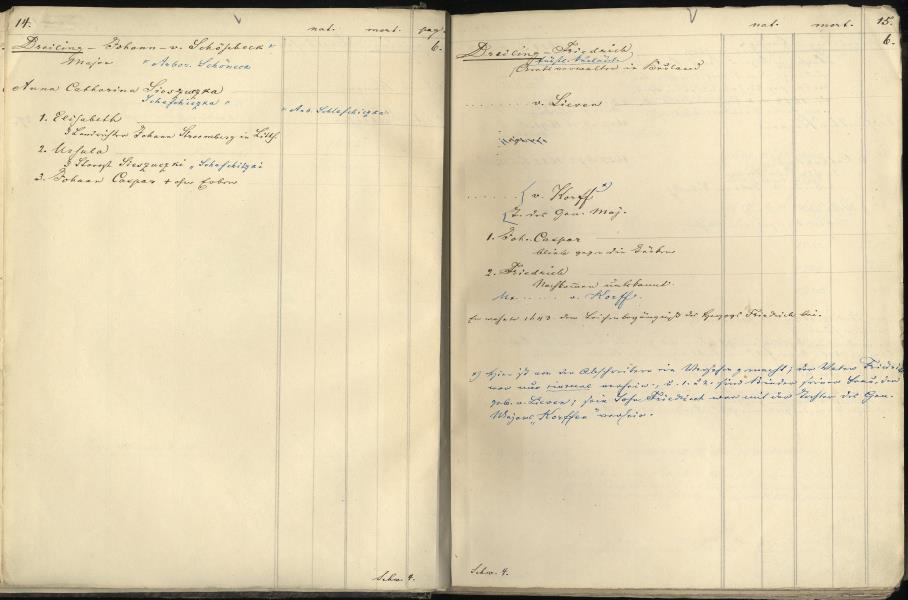 14.
nat. mort. pag.
Dreiling – Johann – v. Schöszbeck
6.
Major
Arbor. Schöneck
Anna Catharina Sieszuczka
Schafschiczka
Arb. Schlafschiczka
1. Elisabeth
Landrichter Johann Stroomberg in Litth.
2. Ursula
Starost Sieszuczki „Schafschitzki
3. Johann Caspar + ohne Erben
Schw. 4.
nat. mort. 15.
Dreiling – Friedrich
6.
in Kurland
v. Lieven
v. Korff
T. des Gen. Maj.
1. Joh. Caspar
blieb gegen die Türken
2. Friedrich
Nachkommen unbekannt.
v. Korff.
Er wohnte 1643 dem Leichenbegängniß des Herzogs Friedrich bei.
Hier ist von den Abschreibern ein Versehen gemacht; der Vater Friedrich
war nur einmal verheir., u. 1. u. 2. sind Kinder seiner Frau, der
geb. v. Lieven; sein Sohn Friedrich war mit der Tochter des Gen.
Majors „Korffen" verheir.
Schw. 4.